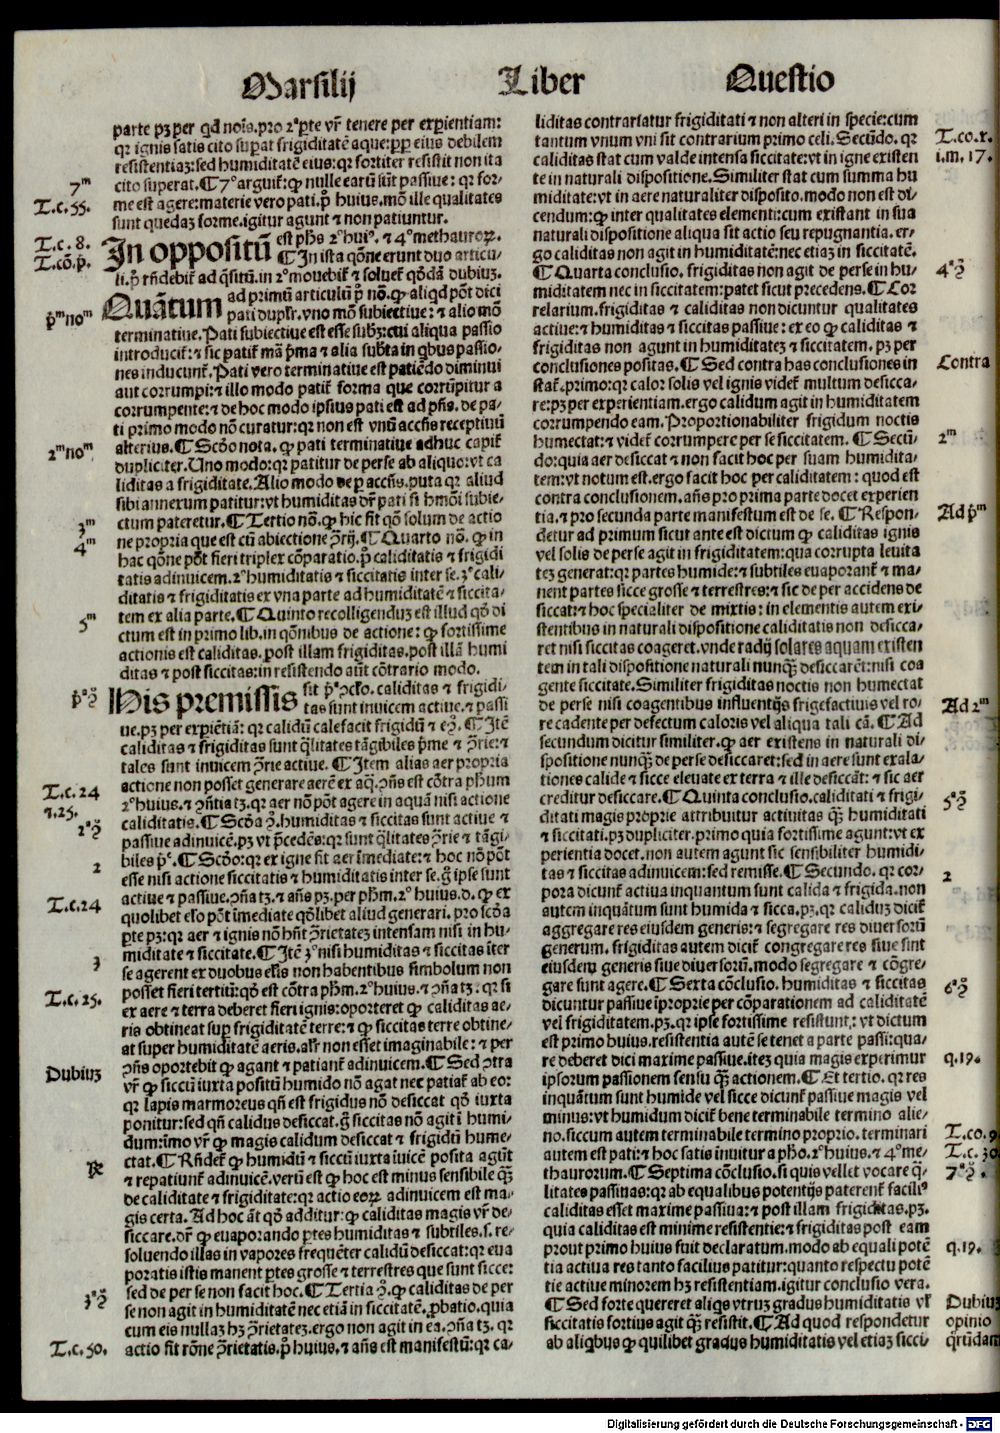 Marsilij Liber Questio
parte pꝫ per qd noīs. pro 2ª ꝑte vr̄ tenere per experientiam:
qꝛ ignis satis cito suꝑat frigiditatē aque: ꝓpꝑ eius debilem
resistentiaꝫ: sed humiditatē eius: qꝛ fortiter resistit non ita
cito superat. ¶ 7º arguit̄: ꝙ nulle earū sūt passiue: qꝛ for⸗
me est agere: materie vero pati. p̄ huius. mō ille qualitates
sunt quedaꝫ forme. igitur agunt ⁊ non patiuntur.
In oppositū est ph̄s 2º huiꝰ. ⁊ 4º methauroꝝ.
¶ In ista qōne erunt duo articu⸗
li. p̄ rn̄debit̄ ad q̄situm. in 2º mouebit̄ ⁊ soluet̄ qōdā dubiuꝫ.
Quātum ad primū articulū p̄ nō. ꝙ aliqd pōt dici
pati duplr̄. vno mō subiectiue: ⁊ alio mō
terminatiue. Pati subiectiue est esse subꝫ: cui aliqua passio
introducit̄: ⁊ sic patit̄ mā p̄ma ⁊ alia subīta in qbus passio⸗
nes inducunt̄. Pati vero terminatiue est patiēdo diminui
aut corrumpi: ⁊ illo modo patit̄ forma que corrūpitur a
corrumpente: ⁊ de hoc modo ipsius pati est ad p̄ns. de pa⸗
ti primo modo nō curatur: qꝛ non est vnū accn̄s receptiuū
alterius. ¶ Scdo nota. ꝙ pati terminatiue adhuc capit̄
dupliciter. Uno modo: qꝛ patitur de per se ab aliquo: vt ca
liditas a frigiditate. Alio modo de ꝑ accn̄s. puta qꝛ aliud
sibi annexum patitur: vt humiditas dr̄ pati si hmōi subie⸗
ctum pateretur. ¶ Tertio nō. ꝙ hic fit qō solum de actio
ne propria que est cū abiectione ꝯrij. ¶ Quarto nō. ꝙ in
hac qōne pōt fieri triplex cōparatio. p̄ caliditatis ⁊ frigidi
tatis adinuicem. 2º humiditatis ⁊ siccitatis inter se. 3º cali⸗
ditatis ⁊ frigiditatis ex vna parte ad humiditatē ⁊ siccita⸗
tem ex alia parte. ¶ Quinto recolligenduꝫ est illud qō di
ctum est in primo lib. in qōnibus de actione: ꝙ fortissime
actionis est caliditas. post illam frigiditas. post illā humi
ditas ⁊ post siccitas: in resistendo aūt cōtrario modo.
His premissis sit pª ꝯclo. caliditas ⁊ frigidi⸗
tas sunt inuicem actiue. ⁊ passi
ue. pꝫ per expiētiā: qꝛ calidū calefacit frigidū ⁊ eꝯ. ¶ Itē
caliditas ⁊ frigiditas sunt q̄litates tāgibiles p̄me ⁊ ꝯrie: ⁊
tales sunt inuicem ꝯrie actiue. ¶ Item alias aer propria
actione non posset generare aerē ex aq̄. ꝯn̄s est cōtra phꝫm
2º huius. ⁊ ꝯn̄tia tꝫ. qꝛ aer nō pōt agere in aquā nisi actione
caliditatis. ¶ Scd̄a ꝯ. humiditas ⁊ siccitas sunt actiue ⁊
passiue adinuicē. pꝫ vt p̄cedēs: qꝛ sunt q̄litates ꝯrie ⁊ tāgi⸗
biles pᵉ. ¶ Scdo: qꝛ ex igne fit aer īmediate: ⁊ hoc nō pōt
esse nisi actione siccitatis ⁊ humiditatis inter se. ḡ ipse sunt
actiue ⁊ passiue. ꝯn̄a tꝫ. ⁊ an̄s pꝫ. per phm̄. 2º huius. d. ꝙ ex
quolibet elo pōt īmediate qōlibet aliud generari. pro scd̄a
ꝑte pꝫ: qꝛ aer ⁊ ignis nō hn̄t ꝯrietateꝫ intensam nisi in hu⸗
miditate ⁊ siccitate. ¶ Itē 3º nisi humiditas ⁊ siccitas īter
se agerent ex duobus elīs non habentibus simbolum non
posset fieri tertiū: qō est cōtra phm̄. 2º huius. ⁊ ꝯn̄a tꝫ. qꝛ si
ex aere ⁊ terra deberet fieri ignis: oporteret ꝙ caliditas ae⸗
ris obtineat suꝑ frigiditatē terre: ⁊ ꝙ siccitas terre obtine⸗
at super humiditatē aeris. alr̄ non esset imaginabile: ⁊ per
ꝯn̄s oportebit ꝙ agant ⁊ patiant̄ adinuicem. ¶ Sed ꝯtra
vr̄ ꝙ siccū iuxta positū humido nō agat nec patiat̄ ab eo:
qꝛ lapis marmoreus qn̄ est frigidus nō desiccat qō iuxta
ponitur: sed qn̄ calidus desiccat. ḡ siccitas nō agit ī humi⸗
dum: īmo vr̄ ꝙ magis calidum desiccat ⁊ frigidū hume⸗
ctat. ¶ Rn̄det̄ ꝙ humidū ⁊ siccū iuxta īuicē posita agūt
⁊ repatiunt̄ adinuicē. verū est ꝙ hoc est minus sensibile ꝙ̄
de caliditate ⁊ frigiditate: qꝛ actio eoꝝ adinuicem est ma⸗
gis certa. Ad hoc āt qō additur: ꝙ caliditas magis vr̄ de⸗
siccare. dr̄ ꝙ euaporando ꝑtes humiditas ⁊ subtiles. s. re⸗
soluendo illas in vapores frequēter calidū desiccat: qꝛ eua
poratis istis manent ꝑtes grosse ⁊ terrestres que sunt sicce:
sed de per se non facit hoc. ¶ Tertia ꝯ. ꝙ caliditas de per
se non agit in humiditatē nec etiā in siccitatē. ꝓbatio. quia
cum eis nullaꝫ hꝫ ꝯrietateꝫ. ergo non agit in ea. ꝯn̄a tꝫ. qꝛ
actio fit rōne ꝯrietatis. p̄ huius. ⁊ an̄s est manifestū: qꝛ ca⸗
7ᵐ
T. c. 55.
T. c. 8.
T. cō. p̄.
p̄ᵐ noᵐ
2ᵐ noᵐ
3ᵐ
4ᵐ
5ᵐ
pª ꝯ
T. c. 24
⁊. 25.
2ª ꝯ
2
T. c. 24
3
T. c. 25.
Dubiuꝫ
℞
3ª ꝯ
T. c. 50.
liditas contrariatur frigiditati ⁊ non alteri in specie: cum
tantum vnum vni sit contrarium primo celi. Secūdo. qꝛ
caliditas stat cum valde intensa siccitate: vt in igne existen
te in naturali dispositione. Similiter stat cum summa hu
miditate: vt in aere naturaliter disposito. modo non est di⸗
cendum: ꝙ inter qualitates elementi: cum existant in sua
naturali dispositione aliqua sit actio seu repugnantia. er⸗
go caliditas non agit in humiditatē: nec etiaꝫ in siccitatē.
¶ Quarta conclusio. frigiditas non agit de per se in hu⸗
miditatem nec in siccitatem: patet sicut precedens. ¶ Cor
relarium. frigiditas ⁊ caliditas non dicuntur qualitates
actiue: ⁊ humiditas ⁊ siccitas passiue: ex eo ꝙ caliditas ⁊
frigiditas non agunt in humiditateꝫ ⁊ siccitatem. pꝫ per
conclusiones positas. ¶ Sed contra has conclusiones in
stat̄. primo: qꝛ calor solis vel ignis videt̄ multum desicca⸗
re: pꝫ per experientiam. ergo calidum agit in humiditatem
corrumpendo eam. Proportionabiliter frigidum noctis
humectat: ⁊ videt̄ corrumpere per se siccitatem. ¶ Secū⸗
do: quia aer desiccat ⁊ non facit hoc per suam humidita⸗
tem: vt notum est. ergo facit hoc per caliditatem: quod est
contra conclusionem. an̄s pro prima parte docet experien
tia. ⁊ pro secunda parte manifestum est de se. ¶ Respon⸗
detur ad primum sicut ante est dictum ꝙ caliditas ignis
vel solis de per se agit in frigiditatem: qua corrupta leuita
teꝫ generat: qꝛ partes humide: ⁊ subtiles euaporant̄ ⁊ ma⸗
nent partes sicce grosse ⁊ terrestres: ⁊ sic de per accidens de
siccat: ⁊ hoc specialiter de mixtis: in elementis autem exi⸗
stentibus in naturali dispositione caliditatis non desicca⸗
ret nisi siccitas coageret. vnde radij solares aquam existen
tem in tali dispositione naturali nunꝙ̄ desiccarēt: nisi coa
gente siccitate. Similiter frigiditas noctis non humectat
de perse nisi coagentibus influentijs frigefactiuis vel ro⸗
re cadente per defectum caloris vel aliqua tali cā. ¶ Ad
secundum dicitur similiter. ꝙ aer existens in naturali di⸗
spositione nunꝙ̄ de per se desiccaret: sed in aere sunt exala⸗
tiones calide ⁊ sicce eleuate ex terra ⁊ ille desiccāt: ⁊ sic aer
creditur desiccare. ¶ Quinta conclusio. caliditati ⁊ frigi⸗
ditati magis proprie attribuitur actiuitas ꝙ̄ humiditati
⁊ siccitati. pꝫ dupliciter. primo quia fortissime agunt: vt ex
perientia docet. non autem agunt sic sensibiliter humidi⸗
tas ⁊ siccitas adinuicem: sed remisse. ¶ Secundo. qꝛ cor⸗
pora dicunt̄ actiua inquantum sunt calida ⁊ frigida. non
autem inquātum sunt humida ⁊ sicca. pꝫ. qꝛ caliduꝫ dicit̄
aggregare res eiusdem generis: ⁊ segregare res diuersorū
generum. frigiditas autem dicit̄ congregare res siue sint
eiusdem generis siue diuersorū. modo segregare ⁊ cōgre⸗
gare sunt agere. ¶ Sexta cōclusio. humiditas ⁊ siccitas
dicuntur passiue īproprie per cōparationem ad caliditatē
vel frigiditatem. pꝫ. qꝛ ipse fortissime resistunt: vt dictum
est primo huius. resistentia autē se tenet a parte passi: qua⸗
re deberet dici maxime passiue. iteꝫ quia magis experimur
ipsorum passionem sensu ꝙ̄ actionem. ¶ Et tertio. qꝛ res
inquātum sunt humide vel sicce dicunt̄ passiue magis vel
minus: vt humidum dicit̄ bene terminabile termino alie⸗
no. siccum autem terminabile termino proprio. terminari
autem est pati: ⁊ hoc satis inuitur a ph̄o. 2º huius. ⁊ 4º me⸗
thaurorum. ¶ Septima cōclusio. si quis vellet vocare q̄⸗
litates passiuas: qꝛ ab equalibus potentijs paterent̄ faciliꝰ
caliditas esset maxime passiua: ⁊ post illam frigiditas. pꝫ.
quia caliditas est minime resistentie: ⁊ frigiditas post eam
prout primo huius fuit declaratum. modo ab equali potē
tia actiua res tanto facilius patitur: quanto respectu potē
tie actiue minorem hꝫ resistentiam. igitur conclusio vera.
¶ Sed forte quereret aliqs vtruꝫ gradus humiditatis vl̄
siccitatis fortius agit ꝙ̄ resistit. ¶ Ad quod respondetur
ab aliqbus ꝙ quilibet gradus humiditatis vel etiaꝫ sicci⸗
T. co. x.
i. m. 17.
4ª ꝯ
Contra
2ᵐ
Ad p̄ᵐ
Ad 2ᵐ
5ª ꝯ
2
6ª ꝯ
q. 19.
T. co. 9
T. c. 30
7ª ꝯ.
q. 19.
Dubiuꝫ
opinio
qr̄ūdam
Digitalisierung gefördert durch die Deutsche Forschungsgemeinschaft - DFG